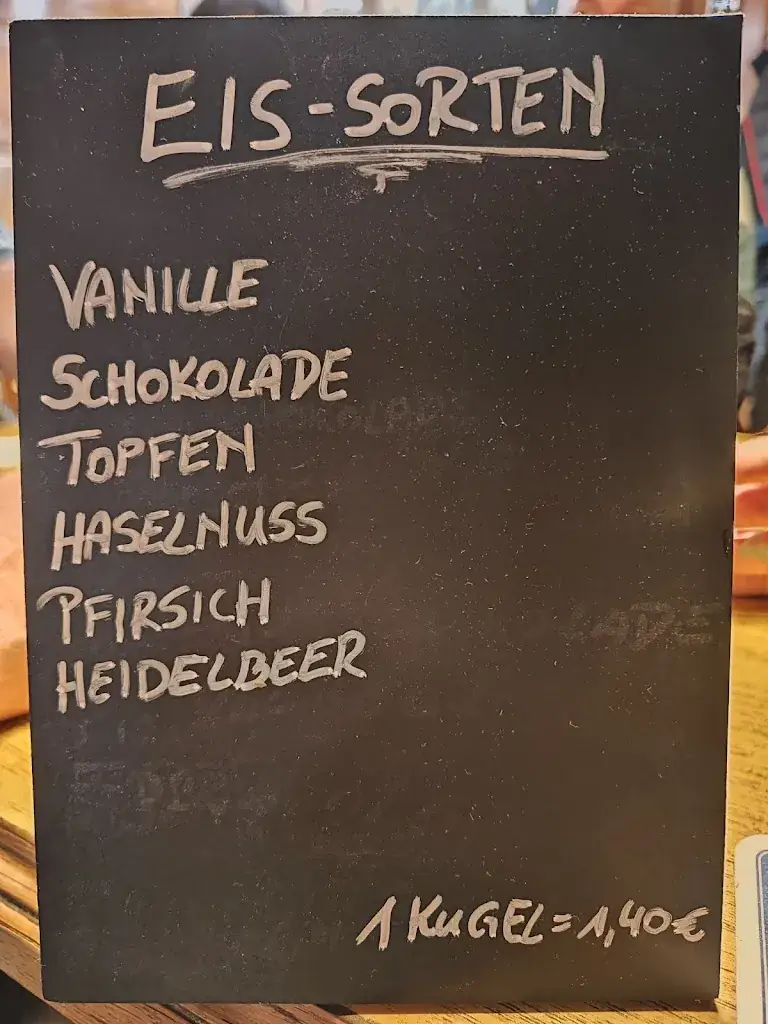 EIS-SORTEN
VANILLE
SCHOKOLADE
TOPFEN
HASELNUSS
PFIRSICH
HEIDELBEER
1 KUGEL = 1,40€